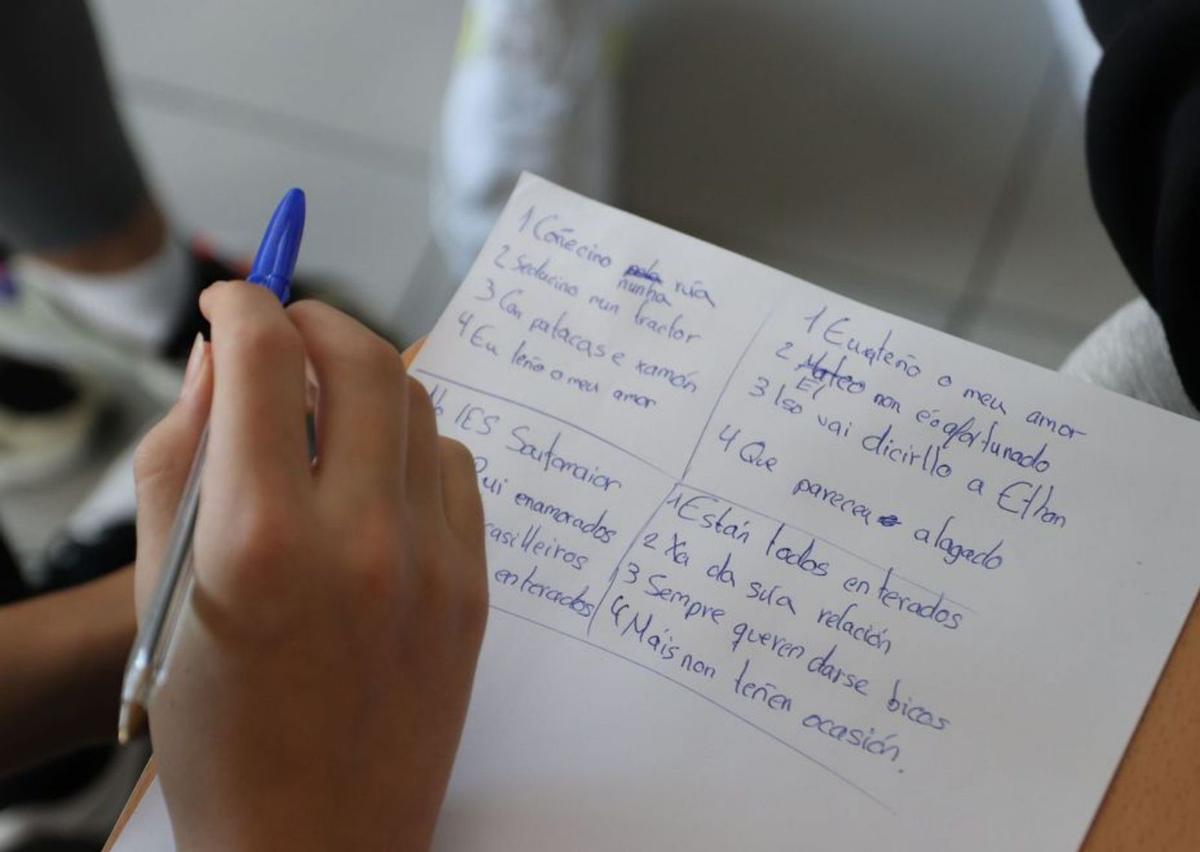 1 Coñecino ~~pola~~ nunha rúa
2 Seducino nun tractor
3 Con patacas e xamón
4 Eu teño o meu amor
1 Eu xa teño o meu amor
2 ~~Mateo~~ El non é o afortunado
3 Iso vai dicirllo a Ethan
4 Que pareceu alagado
IES Soutomaior
enamorados
enterados
1 Están todos enterados
2 Xa da súa relación
3 Sempre queren darse bicos
4 Máis non teñen ocasión.